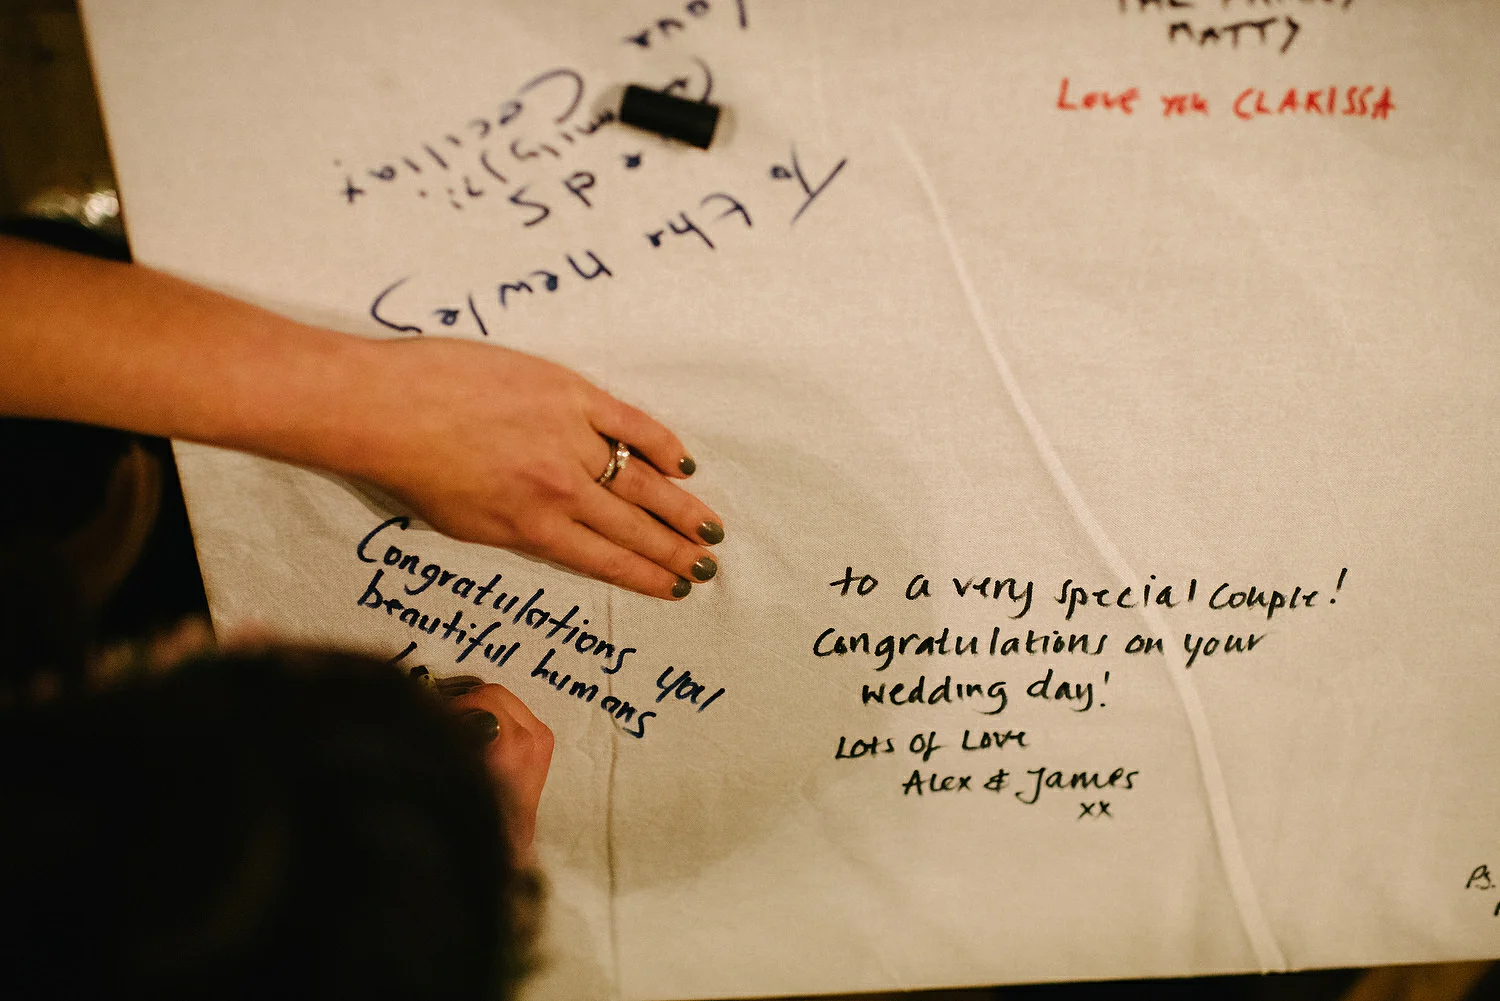 MATTY
Love you CLARISSA
To the newley
Cecilia x
Congratulations you
beautiful humans
to a very special couple!
Congratulations on your
wedding day!
Lots of Love
Alex & James
xx
Ps.